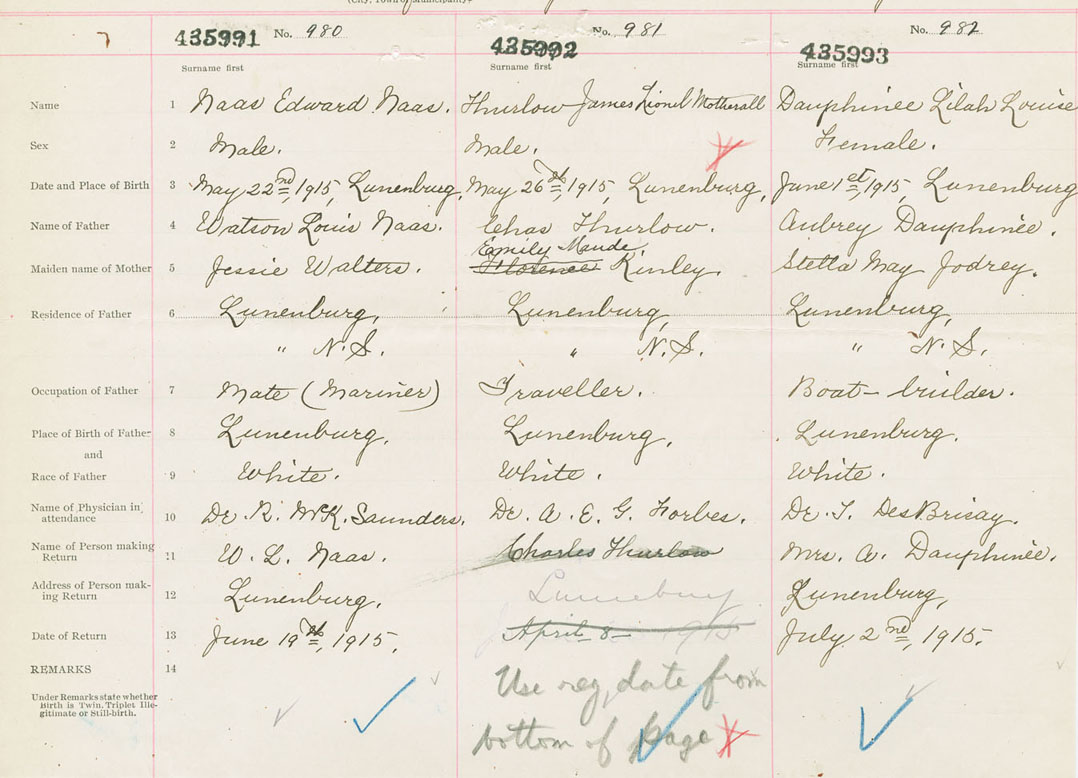 (City, Town or Municipality)
435991 No. 980 435992 No. 981 435993 No. 982
Surname first Surname first Surname first
Name 1 Naas Edward Naas. Thurlow James Lionel Motherall Dauphinee Lilah Louise
Sex 2 Male. Male. Female.
Date and Place of Birth 3 May 22nd, 1915, Lunenburg. May 26th, 1915, Lunenburg, June 1st, 1915, Lunenburg
Name of Father 4 Watson Louis Naas. Chas Thurlow. Aubrey Dauphinee.
Emily Maude
Maiden name of Mother 5 Jessie Walters. Florence Kinley. Stella May Jodrey.
Residence of Father 6 Lunenburg, Lunenburg, Lunenburg,
" N.S. " N.S. " N.S.
Occupation of Father 7 Mate (Mariner) Traveller. Boat-builder.
Place of Birth of Father 8 Lunenburg. Lunenburg. Lunenburg.
and
Race of Father 9 White. White. White.
Name of Physician in
attendance 10 Dr. R. McK. Saunders. Dr. A. E. G. Forbes. Dr. T. DesBrisay.
Name of Person making
Return 11 W. L. Naas. Charles Thurlow Mrs. A. Dauphinee.
Address of Person mak-
ing Return 12 Lunenburg. Lunenburg Lunenburg,
Date of Return 13 June 19th, 1915. April 8- 1915 July 2nd, 1915.
REMARKS 14
Use reg. date from
Under Remarks state whether
Birth is Twin, Triplet Ille-
gitimate or Still-birth.
bottom of page